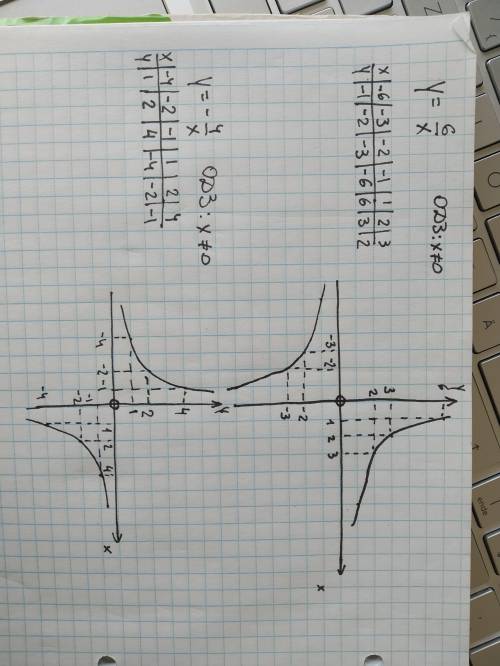 y = 6/x ОДЗ: x≠0
x | -6 | -3 | -2 | -1 | 1 | 2 | 3
y | -1 | -2 | -3 | -6 | 6 | 3 | 2
y
6
3
2
-3 -2
1 2 3
x
-2
-3
y = -4/x ОДЗ: x≠0
x | -4 | -2 | -1 | 1 | 2 | 4
y | 1 | 2 | 4 | -4 | -2 | -1
y
4
2
1
-4 -2 -1
1 2 4
x
-1
-2
-4
ende